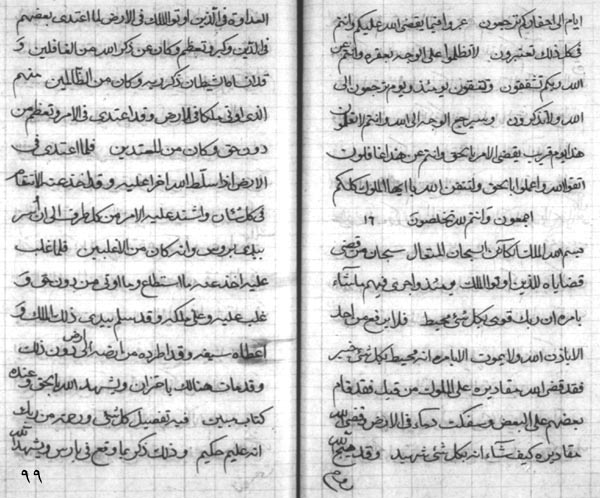 ايام الى احفاركم ترجعون عمروا فيما يقضى الله عليكم وانتم
فى كل ذلك تعتبرون لا تظلموا على الوجه بعقره وانتم عن
الله ربكم تشفقون وتلقون يومئذ ويوم ترجعون الى
الله ولا تذكرون وسيرجع الوجه الى الله وانتم لا تعلمون
هذا يوم قريب يقضى الامر بالحق وانتم عن هذا غافلون
اتقوا الله واعملوا بالحق ولتتقن الله يا ايها الملوك كلكم
اجمعون وانتم لله تخلصون ١٦
بسم الله الملك الكائن السبحان المتعال سبحان من قضى
قضاياه للذين اوتوا الملك ومنذ واجرى فيهم ما يشاء
بامره ان ربك قوى بكل شئ محيط فلا ينفع من احد
الا باذن الله ولا يموت الا بامره انه محيط بكل شئ خبير
فقد قضى الله مقاديره على الملوك من قبل فقد قام
بعضهم على البعض وسفكت دماء فى الارض وقضى الله
مقاديره كيف شاء انه بكل شئ شهيد وقد هيج الله
العداوة فى الذين اوتوا الملك فى الارض لما اعتدى بعضهم
فى الذين وكبر وتعظم وكان عن ذكر الله من الغافلين و
قد انساه الشيطان ذكر ربه وكان من الظالمين منهم
الذى اوتى ملكا فى الارض وقد اعتدى فى الامر وتعظم من
دون حق وكان من المعتدين فلما اعتدى فى
الارض اذا سلط الله اخرا عليه وقد اخذ عنه الانتقام
فى كل شان واشتد عليه الامر من كل طرف الى ان اسر
بيدى بروس وانه كان من الاغلبين فلما غلب
عليه اخذ عنه ما استطلع وما اوتى من دون حق و
غلب عليه وعلى ملكه وقد سلم بيدى ذلك الملك و
اعطاه سيفه وقد اطرده من ارضه الى ارض دون ذلك
وقد مات هنالك باحزان ويشهد الله بالحق وعنده
كتاب مبين فيه تفصيل كل شئ ورحمة من ربك
انه عليم حكيم وذلك ذكر بما وقع فى پاريس ويشهد الله
٩٩